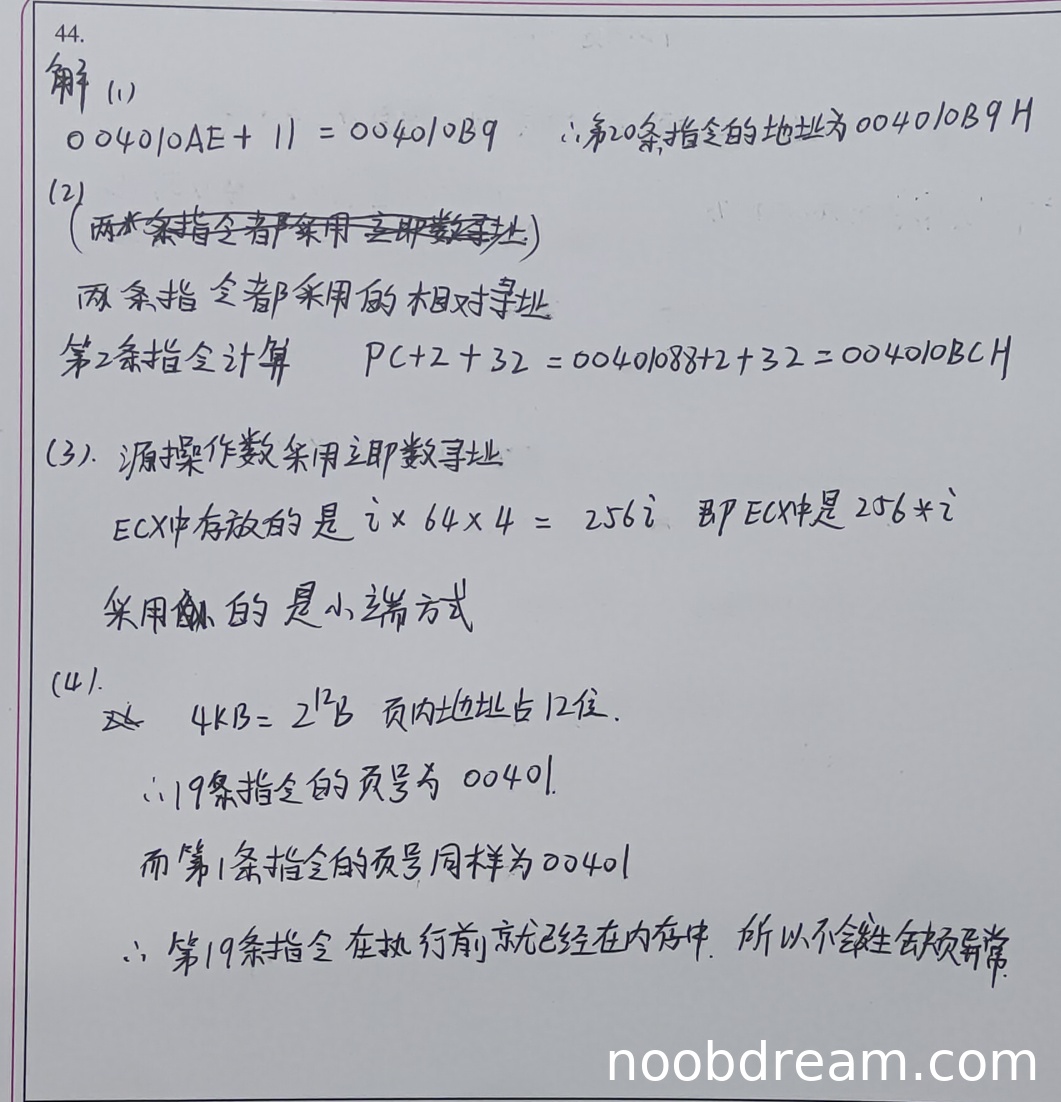 44.
解 (1)
004010AE + 11 = 004010B9 ∴第20条指令的地址为004010B9H
(2)
(两条指令都采用立即数寻址)
两条指令都采用的相对寻址
第2条指令计算 PC+2+32=00401088+2+32=004010BCH
(3). 源操作数采用立即数寻址
ECX中存放的是 i×64×4 = 256i 即ECX中是256*i
采用的是小端方式
(4).
4KB= 2¹²B 页内地址占12位.
∴19条指令的页号为 00401.
而第1条指令的页号同样为00401
∴ 第19条指令在执行前就已经在内存中. 所以不会发生缺页异常.
noobdream.com